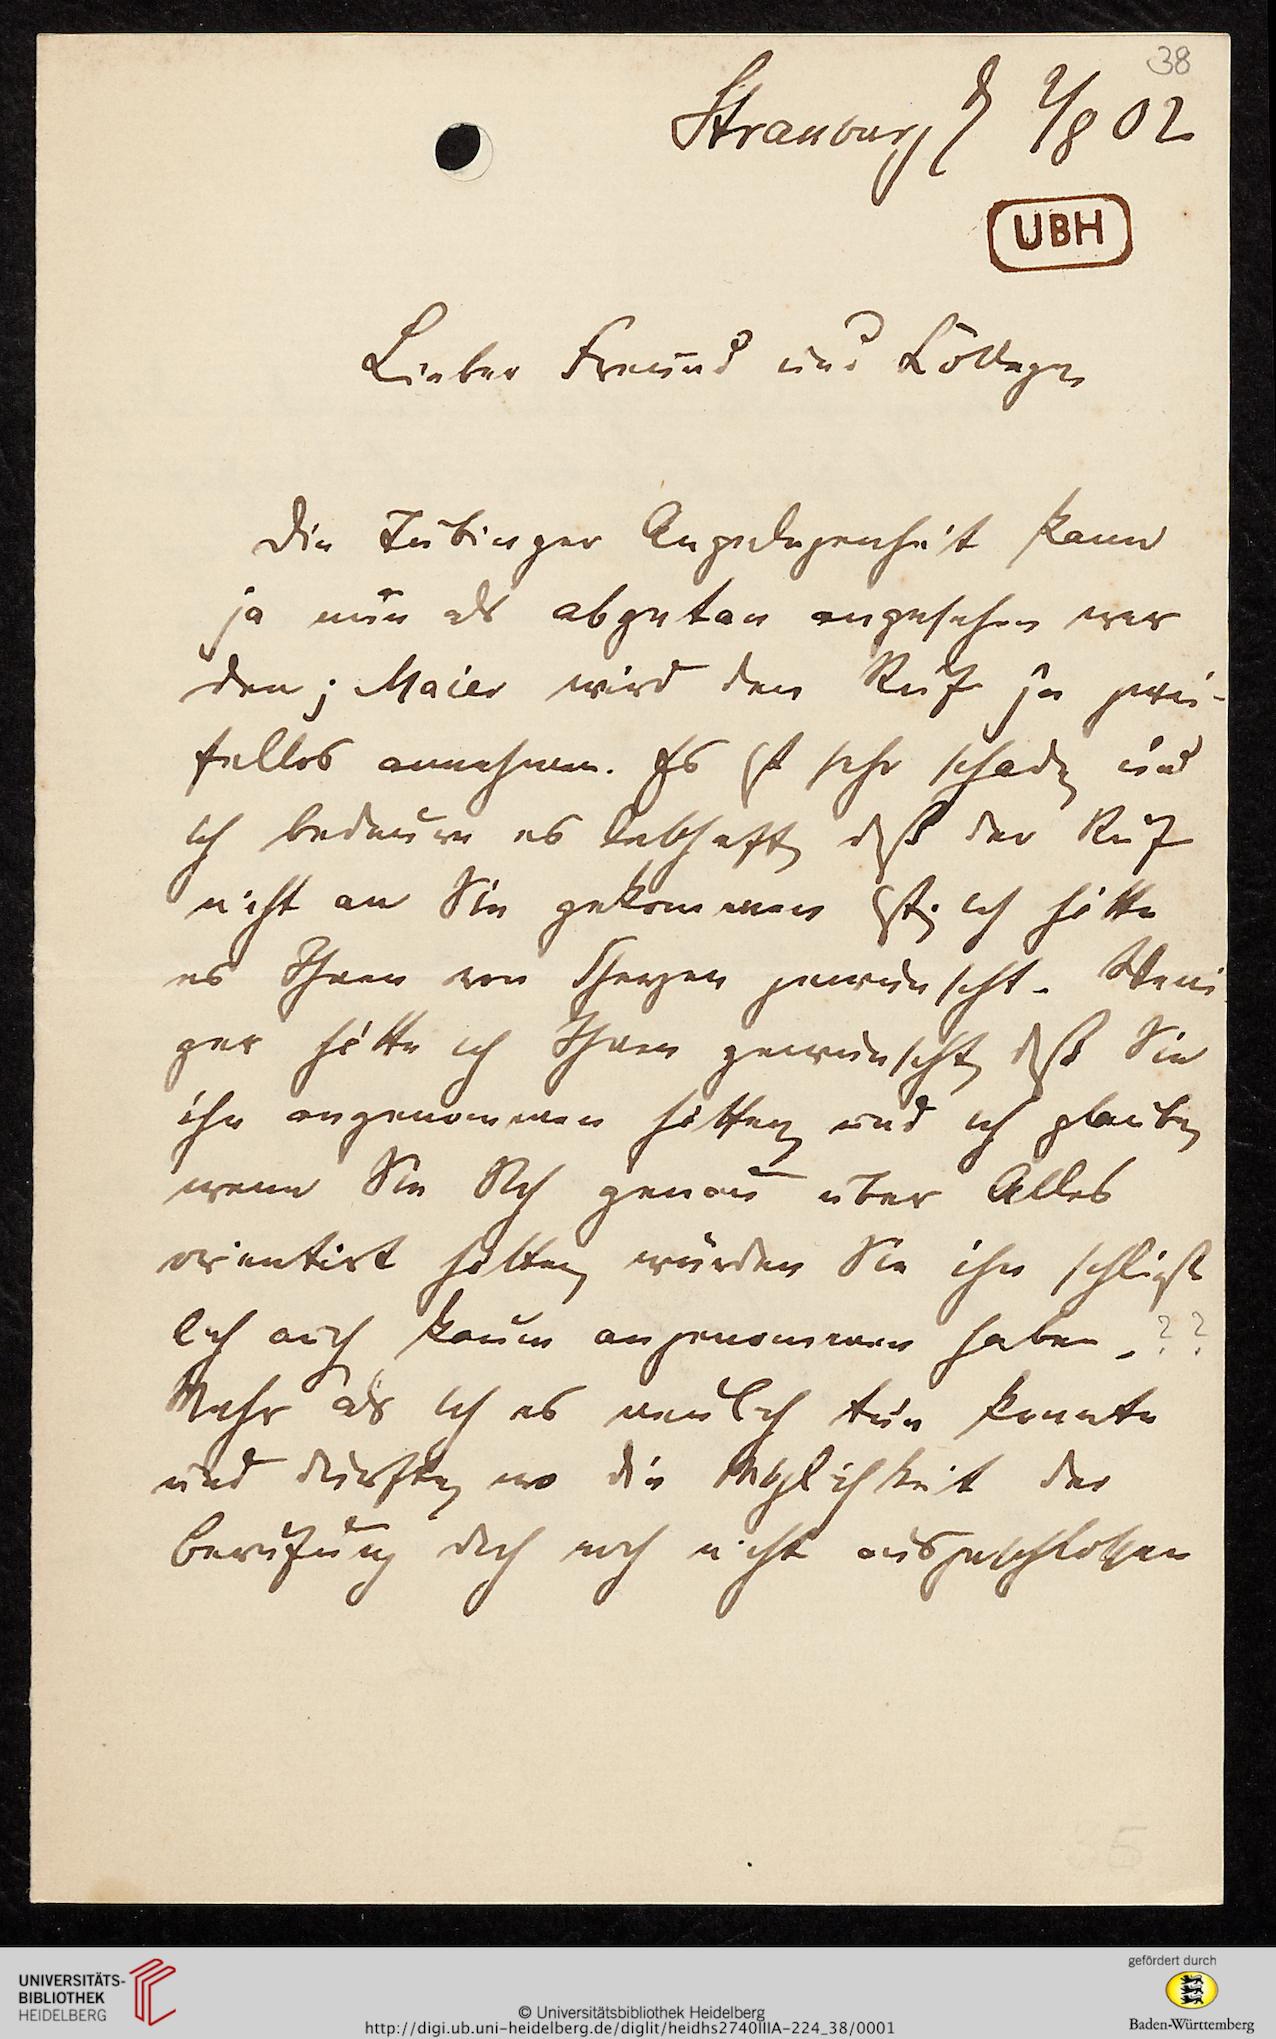 38
Strassburg d 2/8 02
UBH
Lieber Freund und Kollege,
Die Tübinger Angelegenheit kann
ja nun als abgetan angesehen wer
den; Maier wird den Ruf ja zwei-
fellos annehmen. Es ist sehr schade, und
ich bedaure es lebhaft, daß der Ruf
nicht an Sie gekommen ist; ich hätte
es Ihnen von Herzen gewünscht. Weni
ger hätte ich Ihnen gewünscht, daß Sie
ihn angenommen hätten, und ich glaube,
wenn Sie Sich genau über Alles
orientirt hätten, würden Sie ihn schließ
lich auch kaum angenommen haben. ??
Mehr als ich es neulich tun konnte
und durfte, wo die Möglichkeit der
Berufung doch noch nicht ausgeschlossen
UNIVERSITÄTS-
BIBLIOTHEK
HEIDELBERG
© Universitätsbibliothek Heidelberg
http://digi.ub.uni-heidelberg.de/diglit/heidhs2740IIIA-224_38/0001
gefördert durch
Baden-Württemberg